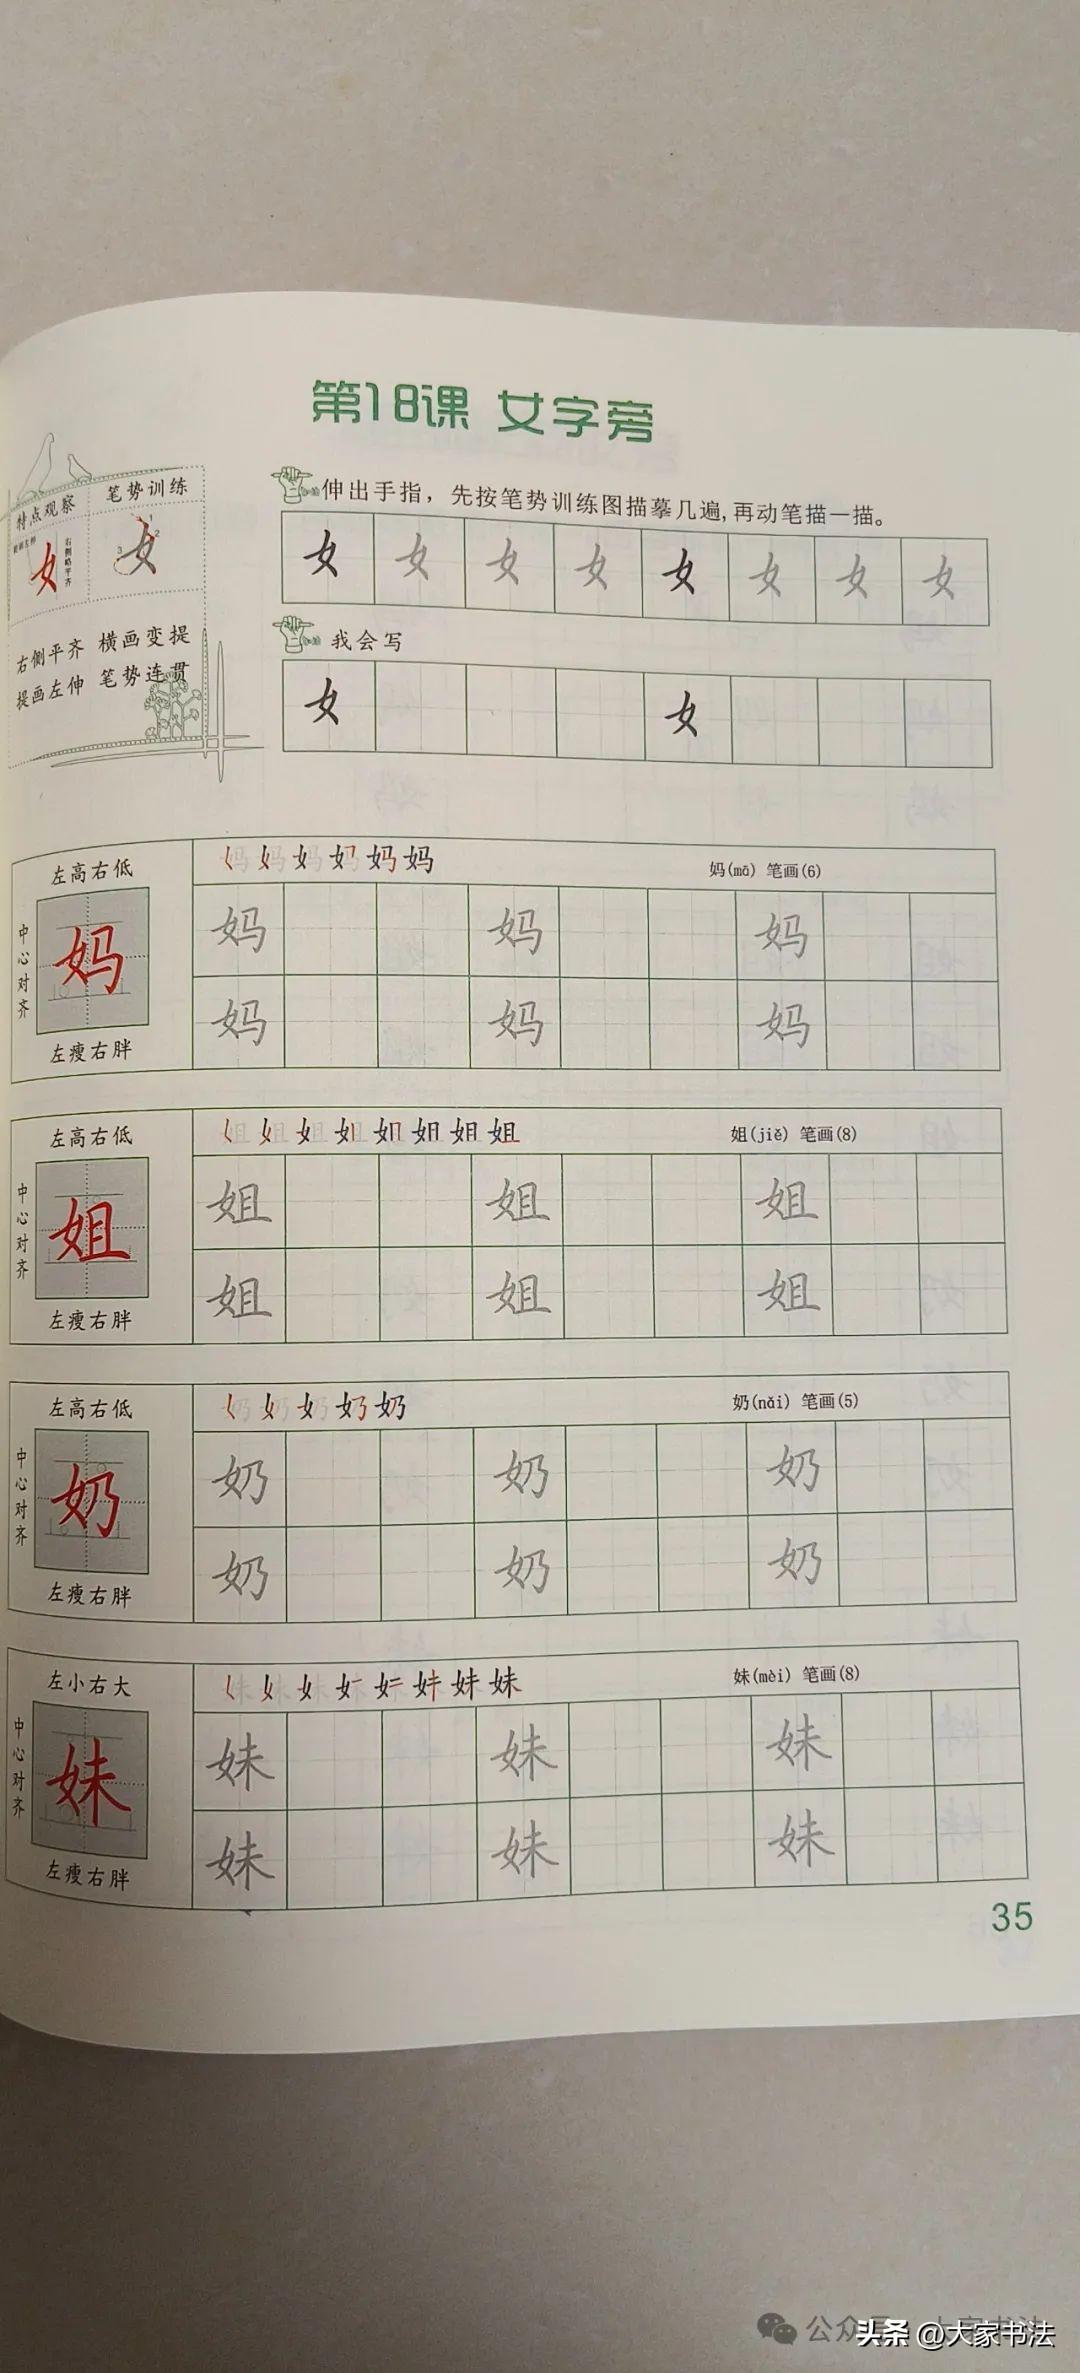 第18课 女字旁
特点观察 笔势训练
右侧略平齐
1
2
3
右侧平齐 横画变提
提画左伸 笔势连贯
伸出手指，先按笔势训练图描摹几遍,再动笔描一描。
女 女 女 女 女 女 女 女
我会写
女 女
左高右低
中心对齐
妈
左瘦右胖
妈(mā) 笔画(6)
妈 妈 妈
妈 妈 妈
左高右低
中心对齐
姐
左瘦右胖
姐(jiě) 笔画(8)
姐 姐 姐
姐 姐 姐
左高右低
中心对齐
奶
左瘦右胖
奶(nǎi) 笔画(5)
奶 奶 奶
奶 奶 奶
左小右大
中心对齐
妹
左瘦右胖
妹(mèi) 笔画(8)
妹 妹 妹
妹 妹 妹
35
公众号
头条 @大家书法